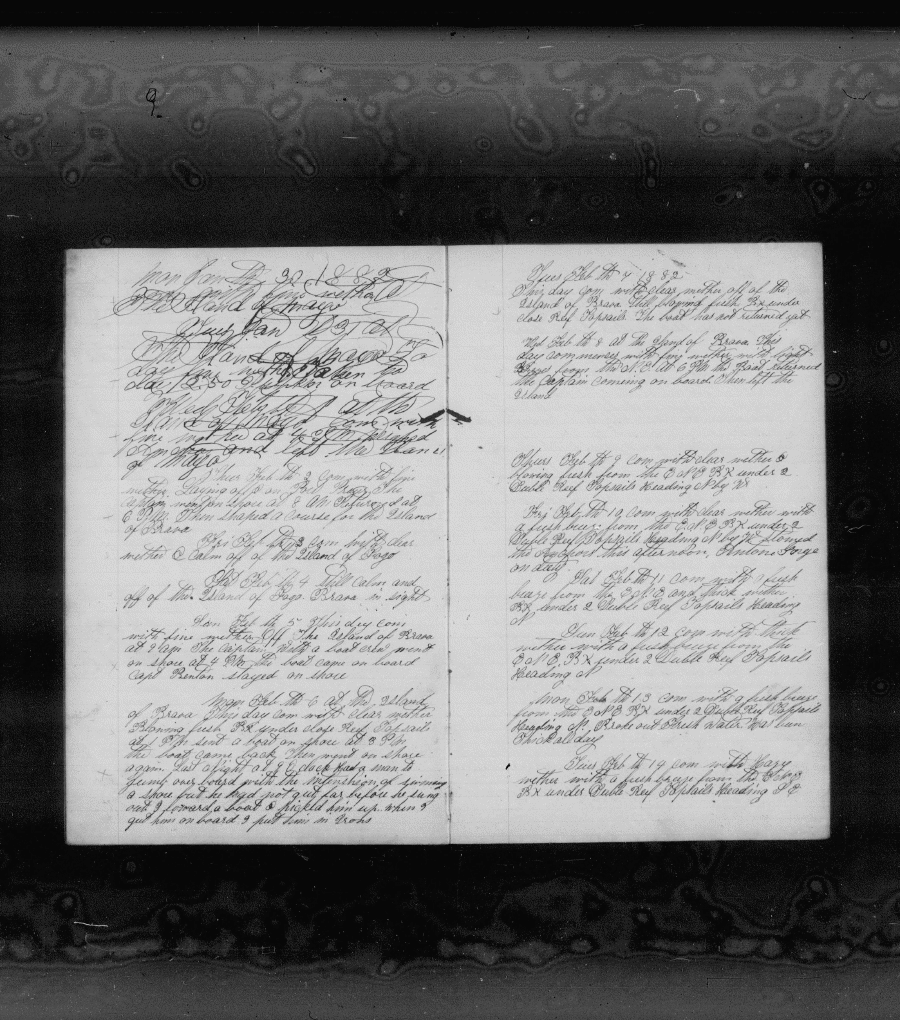 9
Mon Jan th 30 1882
The Island of Mayo
Tues Jan 31 at
the Island of Mayo
day fine wether taken to
day 1250 on board
Wed Feb th 1 at the
Island of Mayo com with
fine wether at 4 PM
and left the Island
of Mayo
Thurs Feb th 2 Com with fine
wether Laying off & on The
Captain went on shore at 8 AM Returned at
6 PM Then shaped a Course for the Island
of Brava
Fri Feb th 3 Com with clear
wether & Calm off of the Island of Fogo
Sat Feb th 4 Still Calm and
off of the Island of Fogo Brava in sight
Sun Feb th 5 This day com
with fine wether Off The Island of Brava
at 9 AM The Captain with a boat crew went
on shore at 4 PM the boat came on board
Capt stayed on shore
Mon Feb th 6 at The Island
of Brava This day com with clear wether
Blowing fresh BX under close Reef Topsails
at 1 PM sent a boat on shore at 3 PM
the boat came back Then went on shore
again Last night at 8 Oclock had a man to
jump over board with the intension of swiming
a shore but he had not got far before he sung
out I lowerd a boat & picked him up when I
got him on board I put him in Irons
Tues Feb th 7 1882
This day Com with clear wether off of the
Island of Brava Still blowing fresh BX under
close Reef Topsails The boat has not returned yet
Wed Feb th 8 at the Island of Brava This
day commences with fine wether with light
from the N E at 6 PM the Boat returned
the Captain coming on board then left the
Island
Thurs Feb th 9 com with clear wether &
blowing fresh from the E N E BX under 2
Duble Reef Topsails Heading N by W
Fri Feb th 10 com with clear wether with
a fresh beeze from the E N E BX under 2
Duble Reef Topsails Heading N by W
the this afternoon, Antone
on duty
Sat Feb th 11 com with a fresh
beeze from the E N E and thick wether
BX under 2 Duble Reef Topsails Heading
N
Sun Feb th 12 com with thick
wether with a fresh beeze from the
E N E BX under 2 Duble Reef Topsails
Heading N
Mon Feb th 13 com with a fresh beeze
from the E N E BX under 2 Duble Reef Topsails
Heading N, Broke out Fresh Water Has been
Thick all day
Tues Feb th 14 com with Hazy
wether with a fresh beeze from the
BX under Duble Reef Topsails Heading